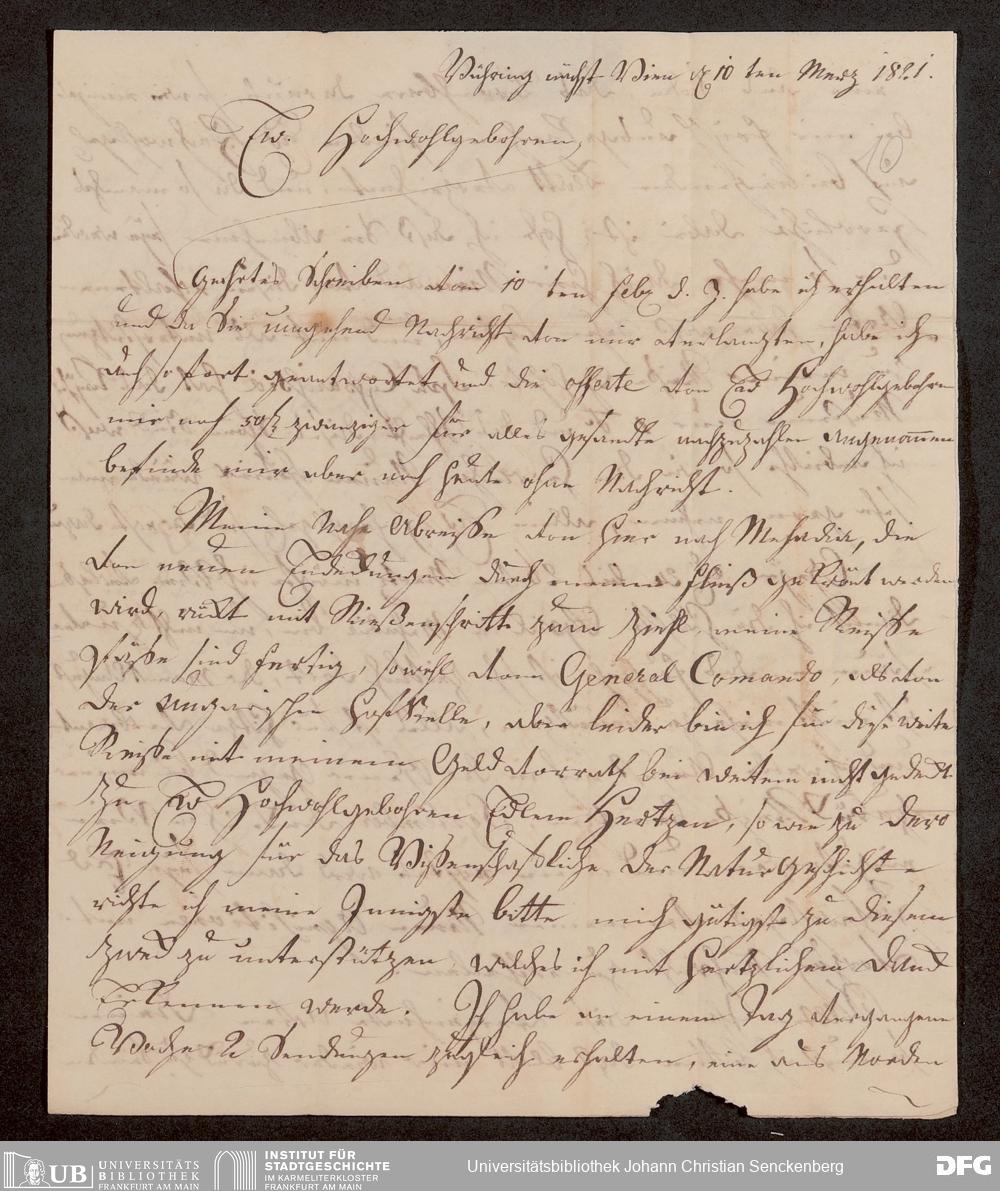 Währing nächst Wien d 10 ten Merz 1821.
16
Ew. Hochwohlgebohren,
Geehrtes Schreiben vom 10 ten feb d. J. habe ich erhalten
und da Sie umgehend Nachricht von mir verlangten, habe ich
auch so fort geantwortet und die offerte von Ew Hochwohlgebohrn
mir noch 50 f zwanziger für alles gesandte nachzuzahlen angenom̅en
befinde mir aber noch heute ohne Nachricht.
Meine Nahe Abreisse von hier nach Mehadia, die
von neuen Endeckungen durch meinen fleiß gekrönt werden
wird, rückt mit Rießenschritte zum Ziehl, meine Reisse
Pässe sind fertig, sowohl vom General Comando, als von
der Ungarischen Hof Stelle, aber leider bin ich für diese weite
Reisse mit meinem Geld vorrath bei weitem nicht gedeckt
Zu Ew Hochwohlgebohren Edlem Hertzen, so wie zu dero
Neigung für das Wissenschaftliche der Naturgeschichte
richte ich meine Innigste bitte mich gütigst zu diesem
Zweck zu unterstützen, welches ich mit Hertzlichem Dank
Erkennen werde. Ich habe an einem Tag vergangene
Woche 2 Sendungen zugleich erhalten, eine aus Norden
UB UNIVERSITÄTS
BIBLIOTHEK
FRANKFURT AM MAIN
INSTITUT FÜR
STADTGESCHICHTE
IM KARMELITERKLOSTER
FRANKFURT AM MAIN
Universitätsbibliothek Johann Christian Senckenberg
DFG